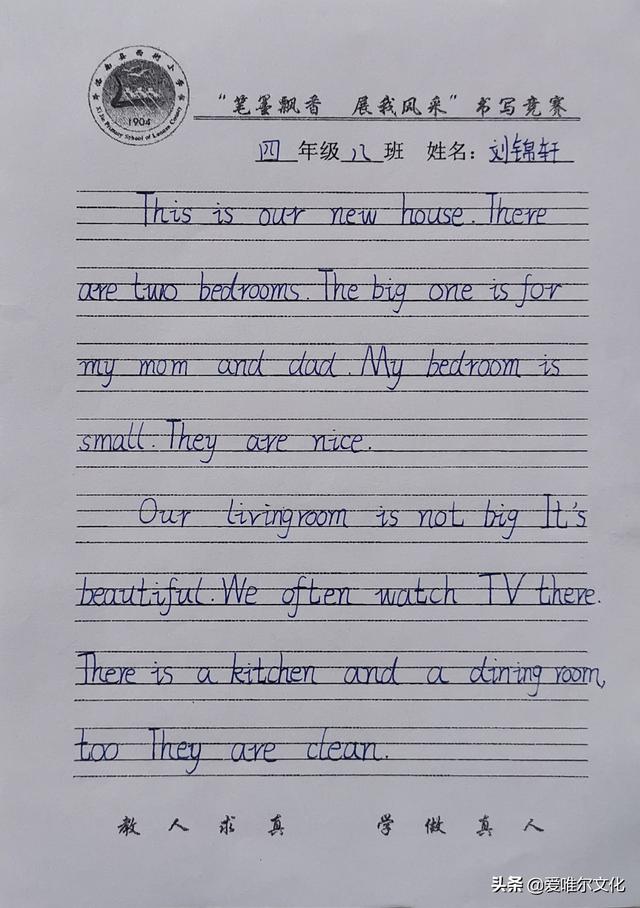 1904
Xi Jie Primary School of Luonan County
“笔墨飘香 展我风采”书写竞赛
四年级八班 姓名：刘锦轩
This is our new house. There
are two bedrooms. The big one is for
my mom and dad. My bedroom is
small. They are nice.
Our livingroom is not big It's
beautiful. We often watch TV there.
There is a kitchen and a dining room,
too They are clean.
教人求真 学做真人
头条 @爱唯尔文化